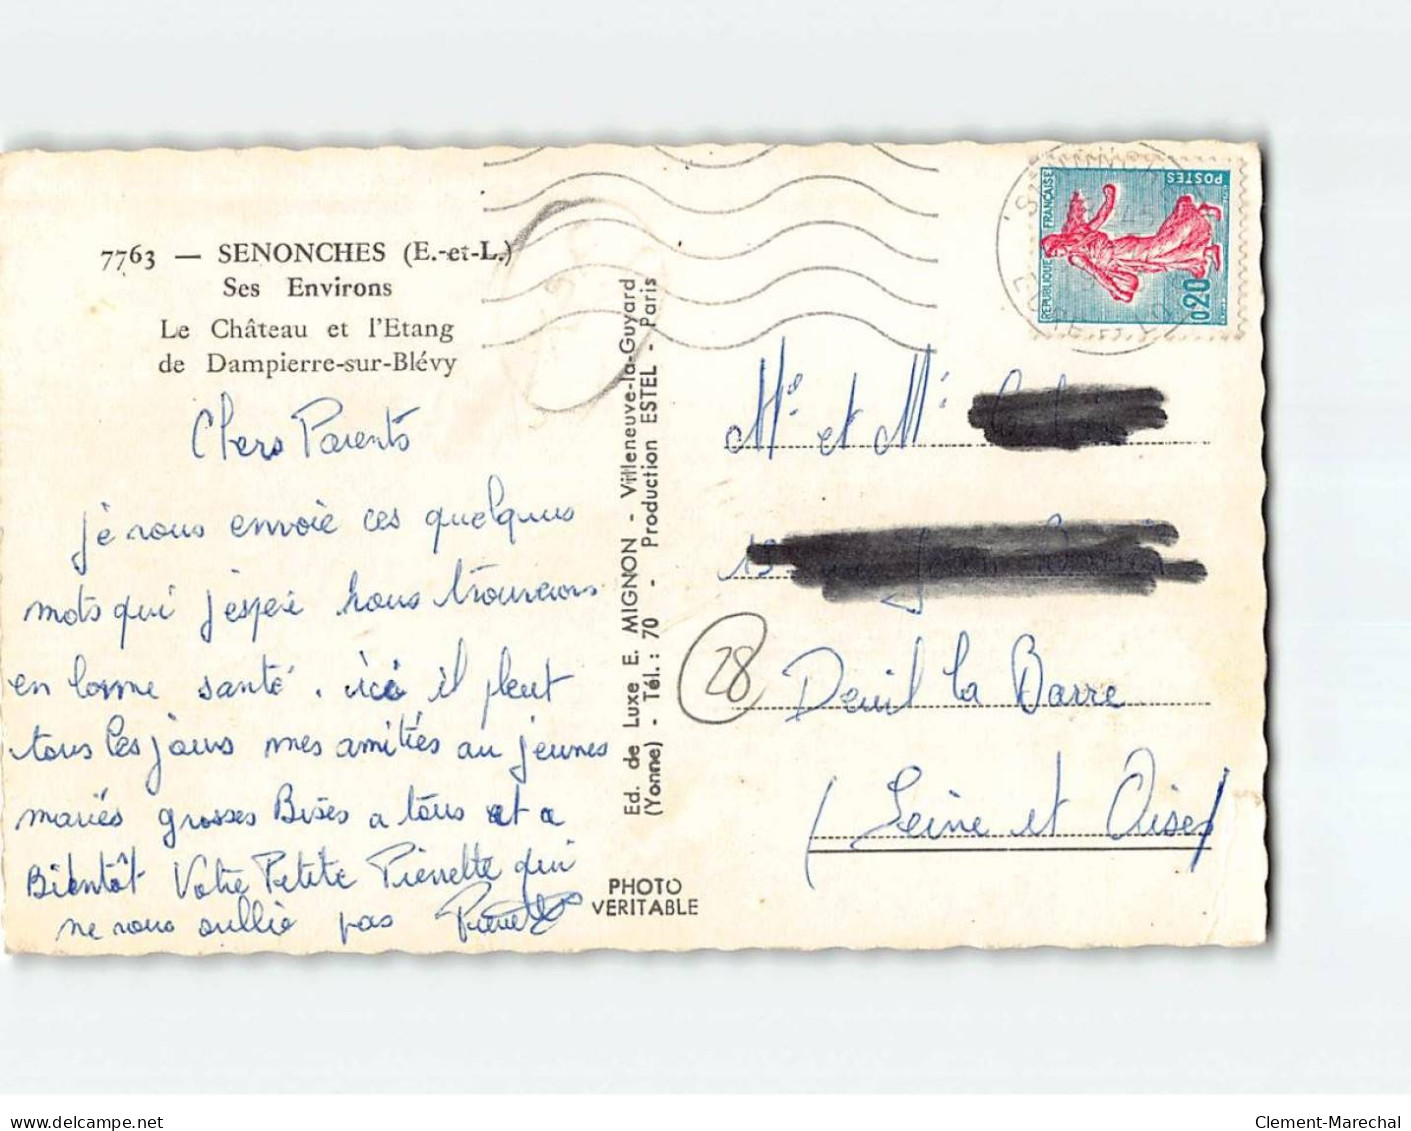 7763 — SENONCHES (E.-et-L.)
Ses Environs
Le Château et l'Etang
de Dampierre-sur-Blévy
Chers Parents
je vous envoie ces quelques
mots qui j'espère vous trouverons
en bonne santé. ici il pleut
tous les jours mes amitiés au jeunes
mariés grosses Bises a tous et a
Bientôt Votre Petite Pierrette qui
ne vous oublie pas Pierrette
Ed. de Luxe E. MIGNON - Villeneuve-la-Guyard
(Yonne) - Tél. : 70 - Production ESTEL - Paris
PHOTO
VERITABLE
REPUBLIQUE FRANÇAISE
POSTES
0,20
EURE-ET-LOIR
Mr et Me
28
Deuil la Barre
(Seine et Oise)
Clement-Marechal